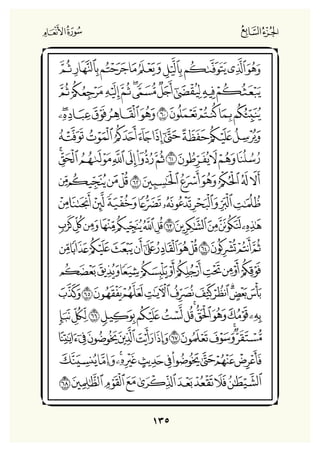 الجُزْءُ السَّابِعُ
سُورَةُ الأَنْعَامِ
وَهُوَ ٱلَّذِي يَتَوَفَّىٰكُم بِٱلَّيۡلِ وَيَعۡلَمُ مَا جَرَحۡتُم بِٱلنَّهَارِ ثُمَّ
يَبۡعَثُكُمۡ فِيهِ لِيُقۡضَىٰٓ أَجَلٞ مُّسَمّٗىۖ ثُمَّ إِلَيۡهِ مَرۡجِعُكُمۡ ثُمَّ
يُنَبِّئُكُم بِمَا كُنتُمۡ تَعۡمَلُونَ ٦٠ وَهُوَ ٱلۡقَاهِرُ فَوۡقَ عِبَادِهِۦۖ
وَيُرۡسِلُ عَلَيۡكُمۡ حَفَظَةً حَتَّىٰٓ إِذَا جَآءَ أَحَدَكُمُ ٱلۡمَوۡتُ تَوَفَّتۡهُ
رُسُلُنَا وَهُمۡ لَا يُفَرِّطُونَ ٦١ ثُمَّ رُدُّوٓاْ إِلَى ٱللَّهِ مَوۡلَىٰهُمُ ٱلۡحَقِّۚ
أَلَا لَهُ ٱلۡحُكۡمُ وَهُوَ أَسۡرَعُ ٱلۡحَٰسِبِينَ ٦٢ قُلۡ مَن يُنَجِّيكُم مِّن
ظُلُمَٰتِ ٱلۡبَرِّ وَٱلۡبَحۡرِ تَدۡعُونَهُۥ تَضَرُّعٗا وَخُفۡيَةٗ لَّئِنۡ أَنجَىٰنَا مِنۡ
هَٰذِهِۦ لَنَكُونَنَّ مِنَ ٱلشَّٰكِرِينَ ٦٣ قُلِ ٱللَّهُ يُنَجِّيكُم مِّنۡهَا وَمِن كُلِّ كَرۡبٖ
ثُمَّ أَنتُمۡ تُشۡرِكُونَ ٦٤ قُلۡ هُوَ ٱلۡقَادِرُ عَلَىٰٓ أَن يَبۡعَثَ عَلَيۡكُمۡ عَذَابٗا مِّن
فَوۡقِكُمۡ أَوۡ مِن تَحۡتِ أَرۡجُلِكُمۡ أَوۡ يَلۡبِسَكُمۡ شِيَعٗا وَيُذِيقَ بَعۡضَكُم
بَأۡسَ بَعۡضٍۗ ٱنظُرۡ كَيۡفَ نُصَرِّفُ ٱلۡأٓيَٰتِ لَعَلَّهُمۡ يَفۡقَهُونَ ٦٥ وَكَذَّبَ
بِهِۦ قَوۡمُكَ وَهُوَ ٱلۡحَقُّۚ قُل لَّسۡتُ عَلَيۡكُم بِوَكِيلٖ ٦٦ لِّكُلِّ نَبَإٖ
مُّسۡتَقَرّٞۚ وَسَوۡفَ تَعۡلَمُونَ ٦٧ وَإِذَا رَأَيۡتَ ٱلَّذِينَ يَخُوضُونَ فِيٓ ءَايَٰتِنَا
فَأَعۡرِضۡ عَنۡهُمۡ حَتَّىٰ يَخُوضُواْ فِي حَدِيثٍ غَيۡرِهِۦۚ وَإِمَّا يُنسِيَنَّكَ
ٱلشَّيۡطَٰنُ فَلَا تَقۡعُدۡ بَعۡدَ ٱلذِّكۡرَىٰ مَعَ ٱلۡقَوۡمِ ٱلظَّٰلِمِينَ ٦٨
١٣٥